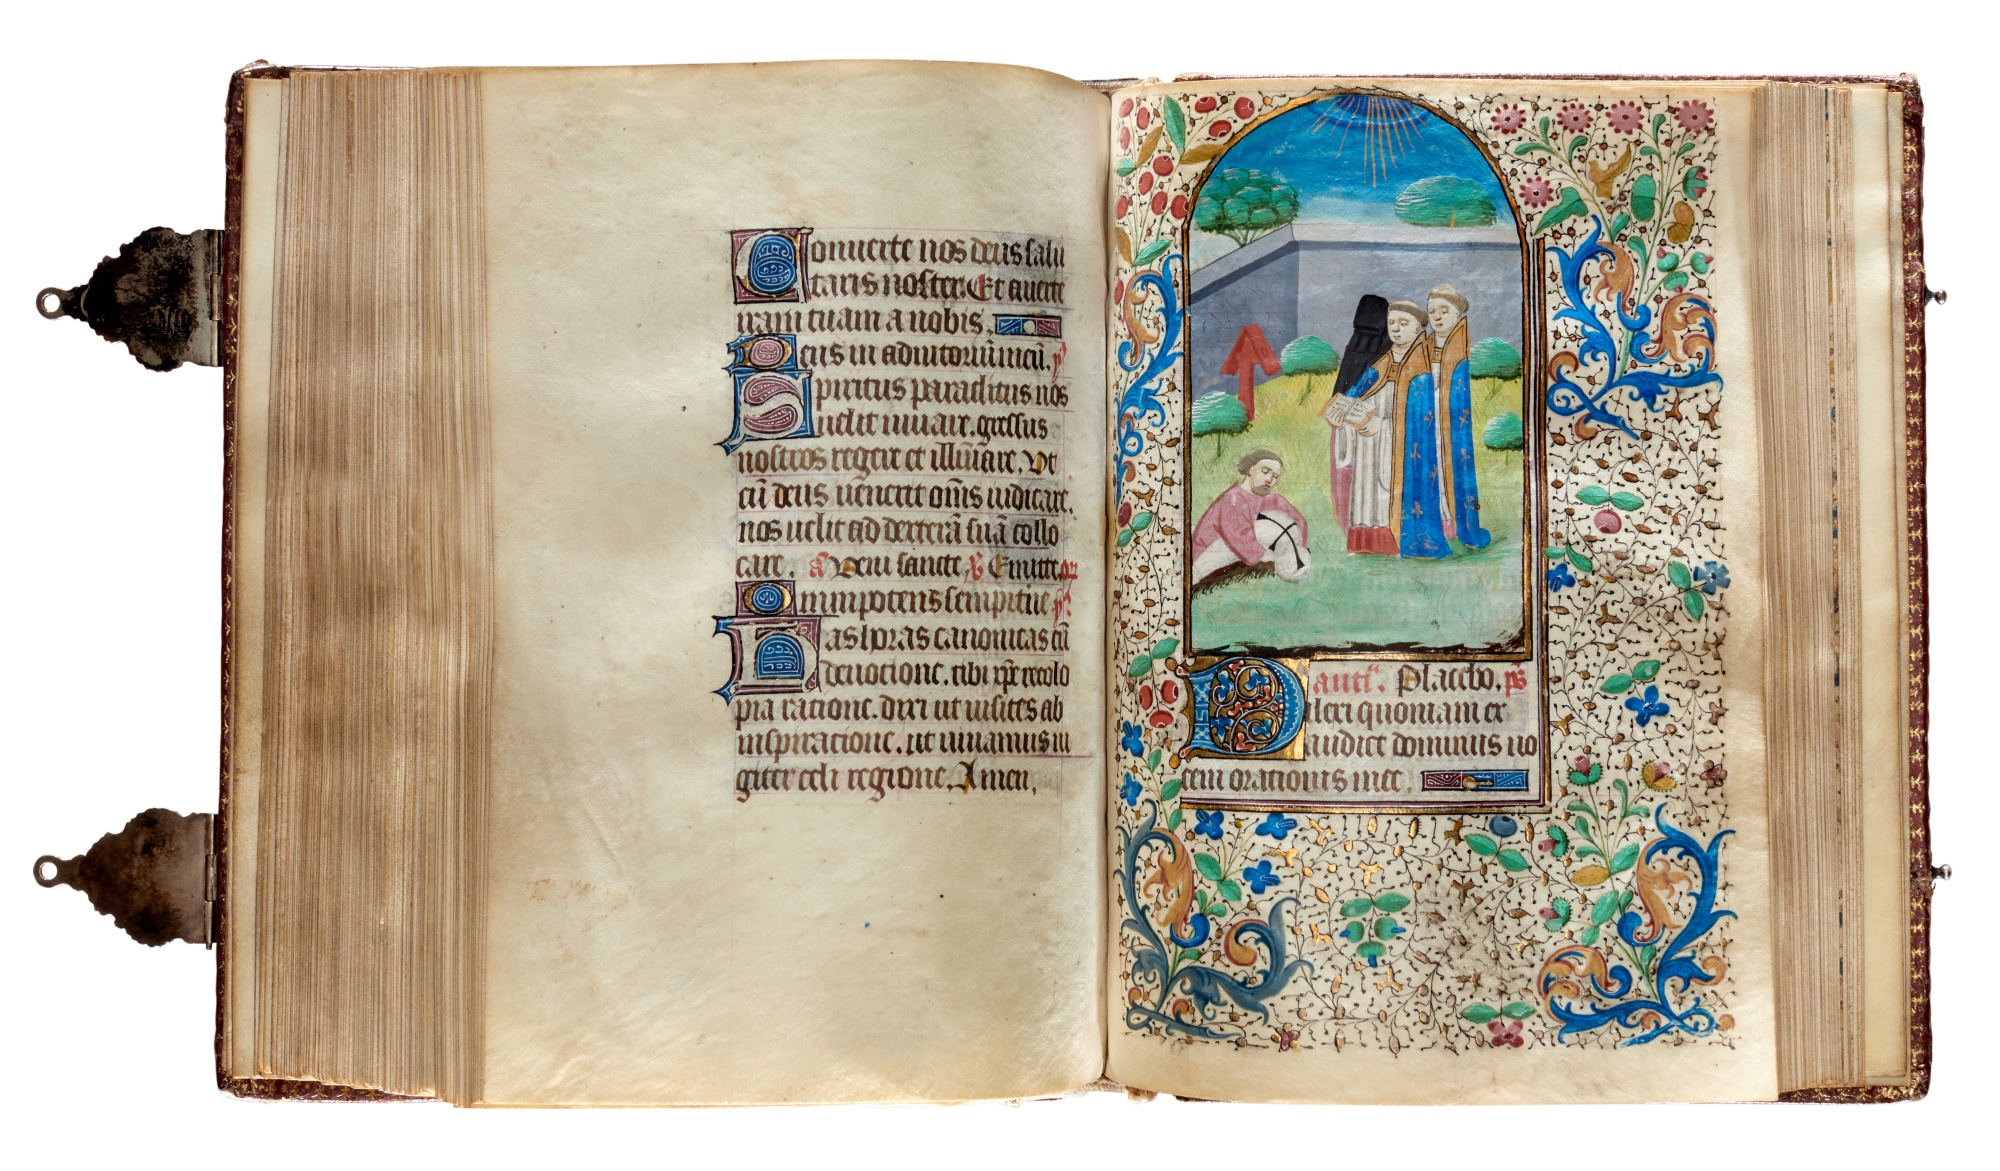 Conuerte nos deus salu
taris noster. Et auerte
iram tuam a nobis.
Deus in adiutoriū meū. ꝟ
Spiritus paraclitus nos
uelit iuuare. gressus
nostros regere et illūinare. Vt
cū deus uenerit om̄s iudicare.
nos uelit ad dexterā suā collo
care. a᷒ Veni sancte ꝟ Emitte. or̄
Omnipotens sempit̄ne ꝟ.
Has horas canonicas cū
deuotione. tibi xp̄e recolo
pia ratione. dixi ut uisites ab
inspiratione. ut uiuamus iu
giter celi regione. Amen.
anti᷒. Placebo. p̄s
Dilexi quoniam ex
audiet dominus uo
cem orationis mee.